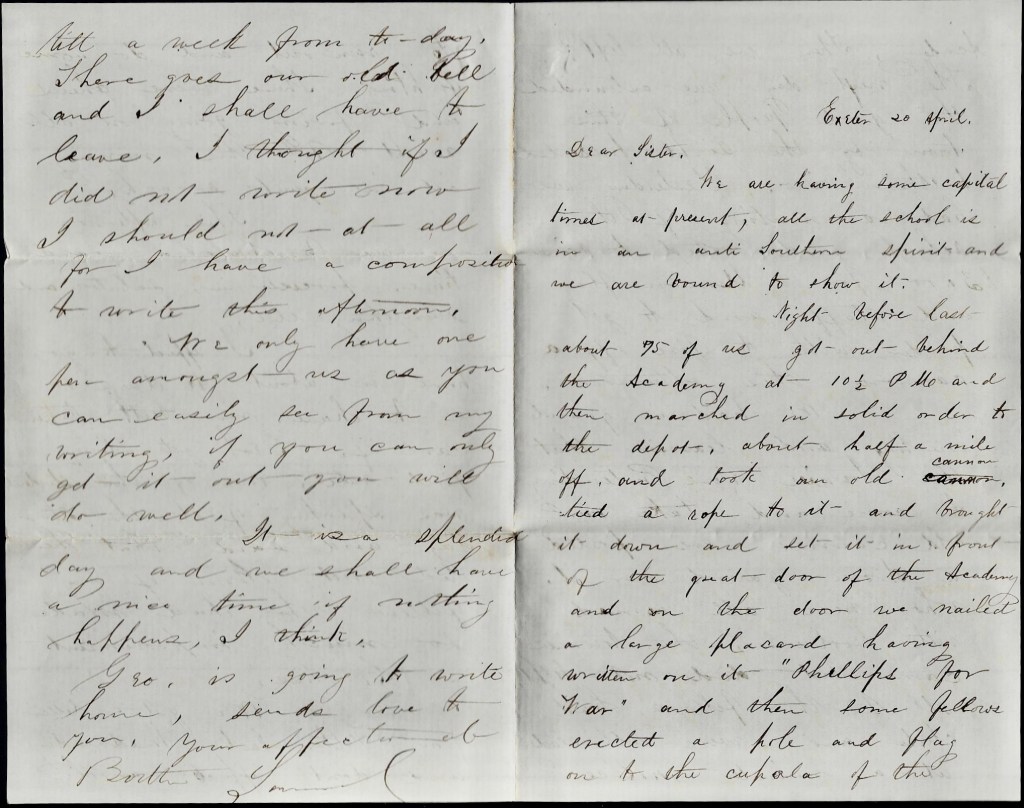 Exeter 20 April.
Dear Sister.
We are having some capital
times at present, all the school is
in an anti Southern spirit and
we are bound to show it.
Night before last
about 75 of us got out behind
the Academy at 10½ PM and
then marched in solid order to
the depot, about half a mile
off, and took an old cannon
cannon,
tied a rope to it and brought
it down and set it in front
of the great door of the Academy
and on the door we nailed
a large placard having
written on it "Phillips for
War" and then some fellows
erected a pole and flag
on to the cupola of the
till a week from to-day.
There goes our old bell
and I shall have to
leave, I thought if I
did not write now
I should not at all
for I have a composition
to write this afternoon.
We only have one
pen amongst us as you
can easily see from my
writing, if you can only
get it out you will
do well.
It is a splendid
day and we shall have
a nice time if nothing
happens, I think.
Geo. is going to write
home, sends love to
you. Your